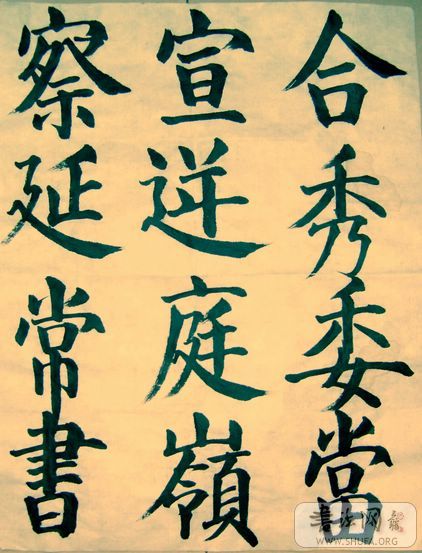 合秀委當
宣迸庭嶺
察延常書
書法网
WWW.SHUFA.ORG